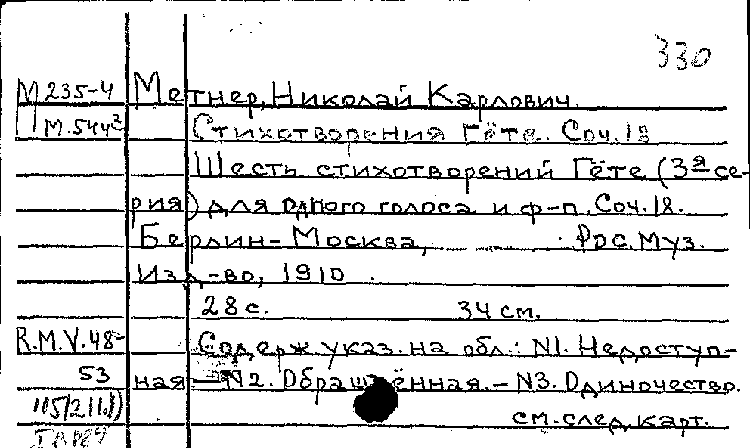 330
М 235-4 Метнер, Николай Карлович.
М.544² Стихотворения Гёте. Соч. 18
Шесть стихотворений Гёте (3я се-
рия) для одного голоса и ф-п. Соч. 18.
Берлин - Москва, Рос. Муз.
Изд-во, 1910.
28 с. 34 см.
R.M.V. 48- Содерж. указ. на обл.: N1. Недоступ-
53 ная - N2. Обращённая. - N3. Одиночество.
см. след. карт.